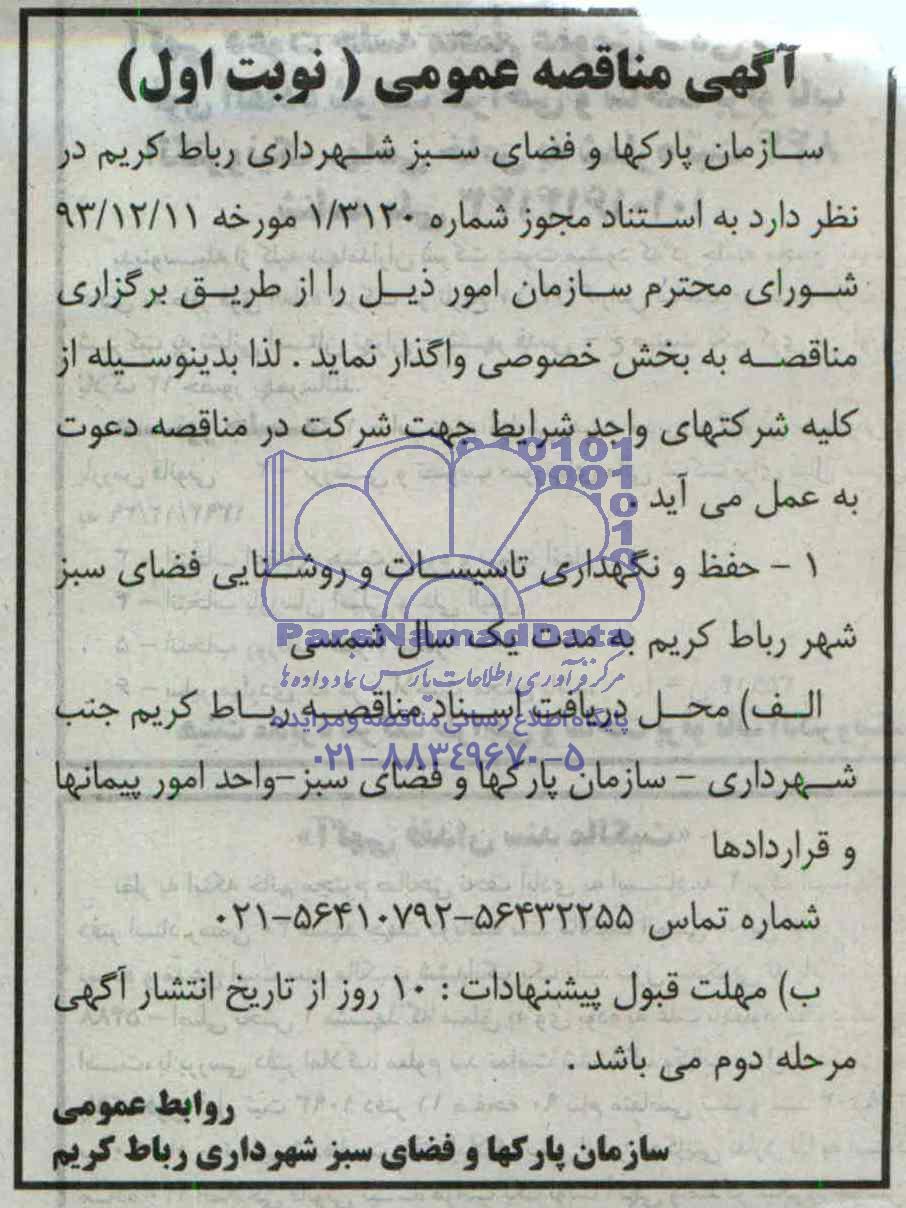 آگهی مناقصه عمومی ( نوبت اول)
سازمان پارکها و فضای سبز شهرداری رباط کریم در
نظر دارد به استناد مجوز شماره ۱/۳۱۲۰ مورخه ۹۳/۱۲/۱۱
شورای محترم سازمان امور ذیل را از طریق برگزاری
مناقصه به بخش خصوصی واگذار نماید . لذا بدینوسیله از
کلیه شرکتهای واجد شرایط جهت شرکت در مناقصه دعوت
به عمل می آید .
۱ - حفظ و نگهداری تاسیسات و روشنایی فضای سبز
شهر رباط کریم به مدت یک سال شمسی
ParsNamadData
مرکز فرآوری اطلاعات پارس نماد داده ها
الف) محل دریافت اسناد مناقصه رباط کریم جنب
پایگاه اطلاع رسانی مناقصه و مزایده
۰۲۱-۸۸۳۴۹۶۷۰-۵
شهرداری - سازمان پارکها و فضای سبز -واحد امور پیمانها
و قراردادها
شماره تماس ۵۶۴۳۲۲۵۵-۵۶۴۱۰۷۹۲-۰۲۱
ب) مهلت قبول پیشنهادات : ۱۰ روز از تاریخ انتشار آگهی
مرحله دوم می باشد .
روابط عمومی
سازمان پارکها و فضای سبز شهرداری رباط کریم